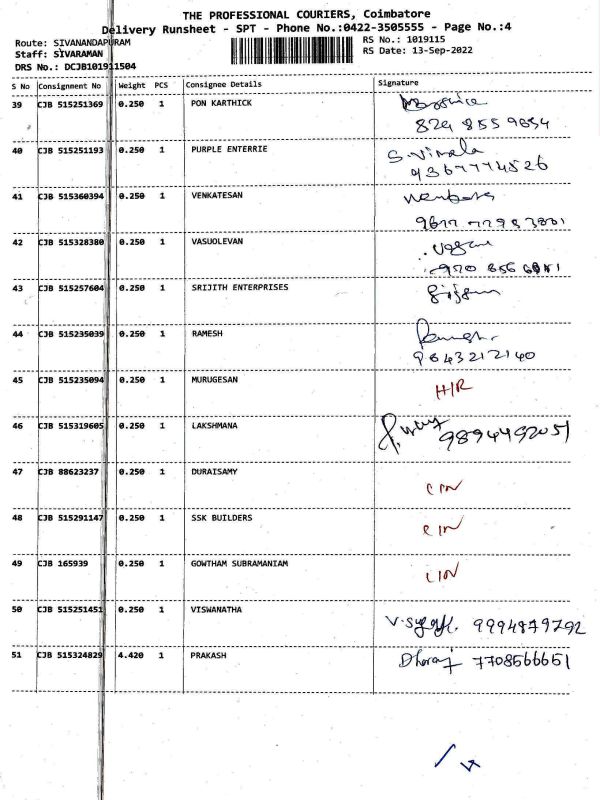 THE PROFESSIONAL COURIERS, Coimbatore
Delivery Runsheet - SPT - Phone No.:0422-3505555 - Page No.:4
Route: SIVANANDAPURAM
RS No.: 1019115
Staff: SIVARAMAN
RS Date: 13-Sep-2022
DRS No.: DCJB101911504
S No Consignment No Weight PCS Consignee Details Signature
39 CJB 515251369 0.250 1 PON KARTHICK
40 CJB 515251193 0.250 1 PURPLE ENTERRIE S. Vimala
9367774526
41 CJB 515360394 0.250 1 VENKATESAN
42 CJB 515328380 0.250 1 VASUOLEVAN
43 CJB 515257604 0.250 1 SRIJITH ENTERPRISES
44 CJB 515235039 0.250 1 RAMESH
9843212140
45 CJB 515235094 0.250 1 MURUGESAN H/R
46 CJB 515319605 0.250 1 LAKSHMANA 9894492051
47 CJB 88623237 0.250 1 DURAISAMY
48 CJB 515291147 0.250 1 SSK BUILDERS
49 CJB 165939 0.250 1 GOWTHAM SUBRAMANIAM
50 CJB 515251451 0.250 1 VISWANATHA 9994879792
51 CJB 515324829 4.420 1 PRAKASH Dhoraj 7708566651